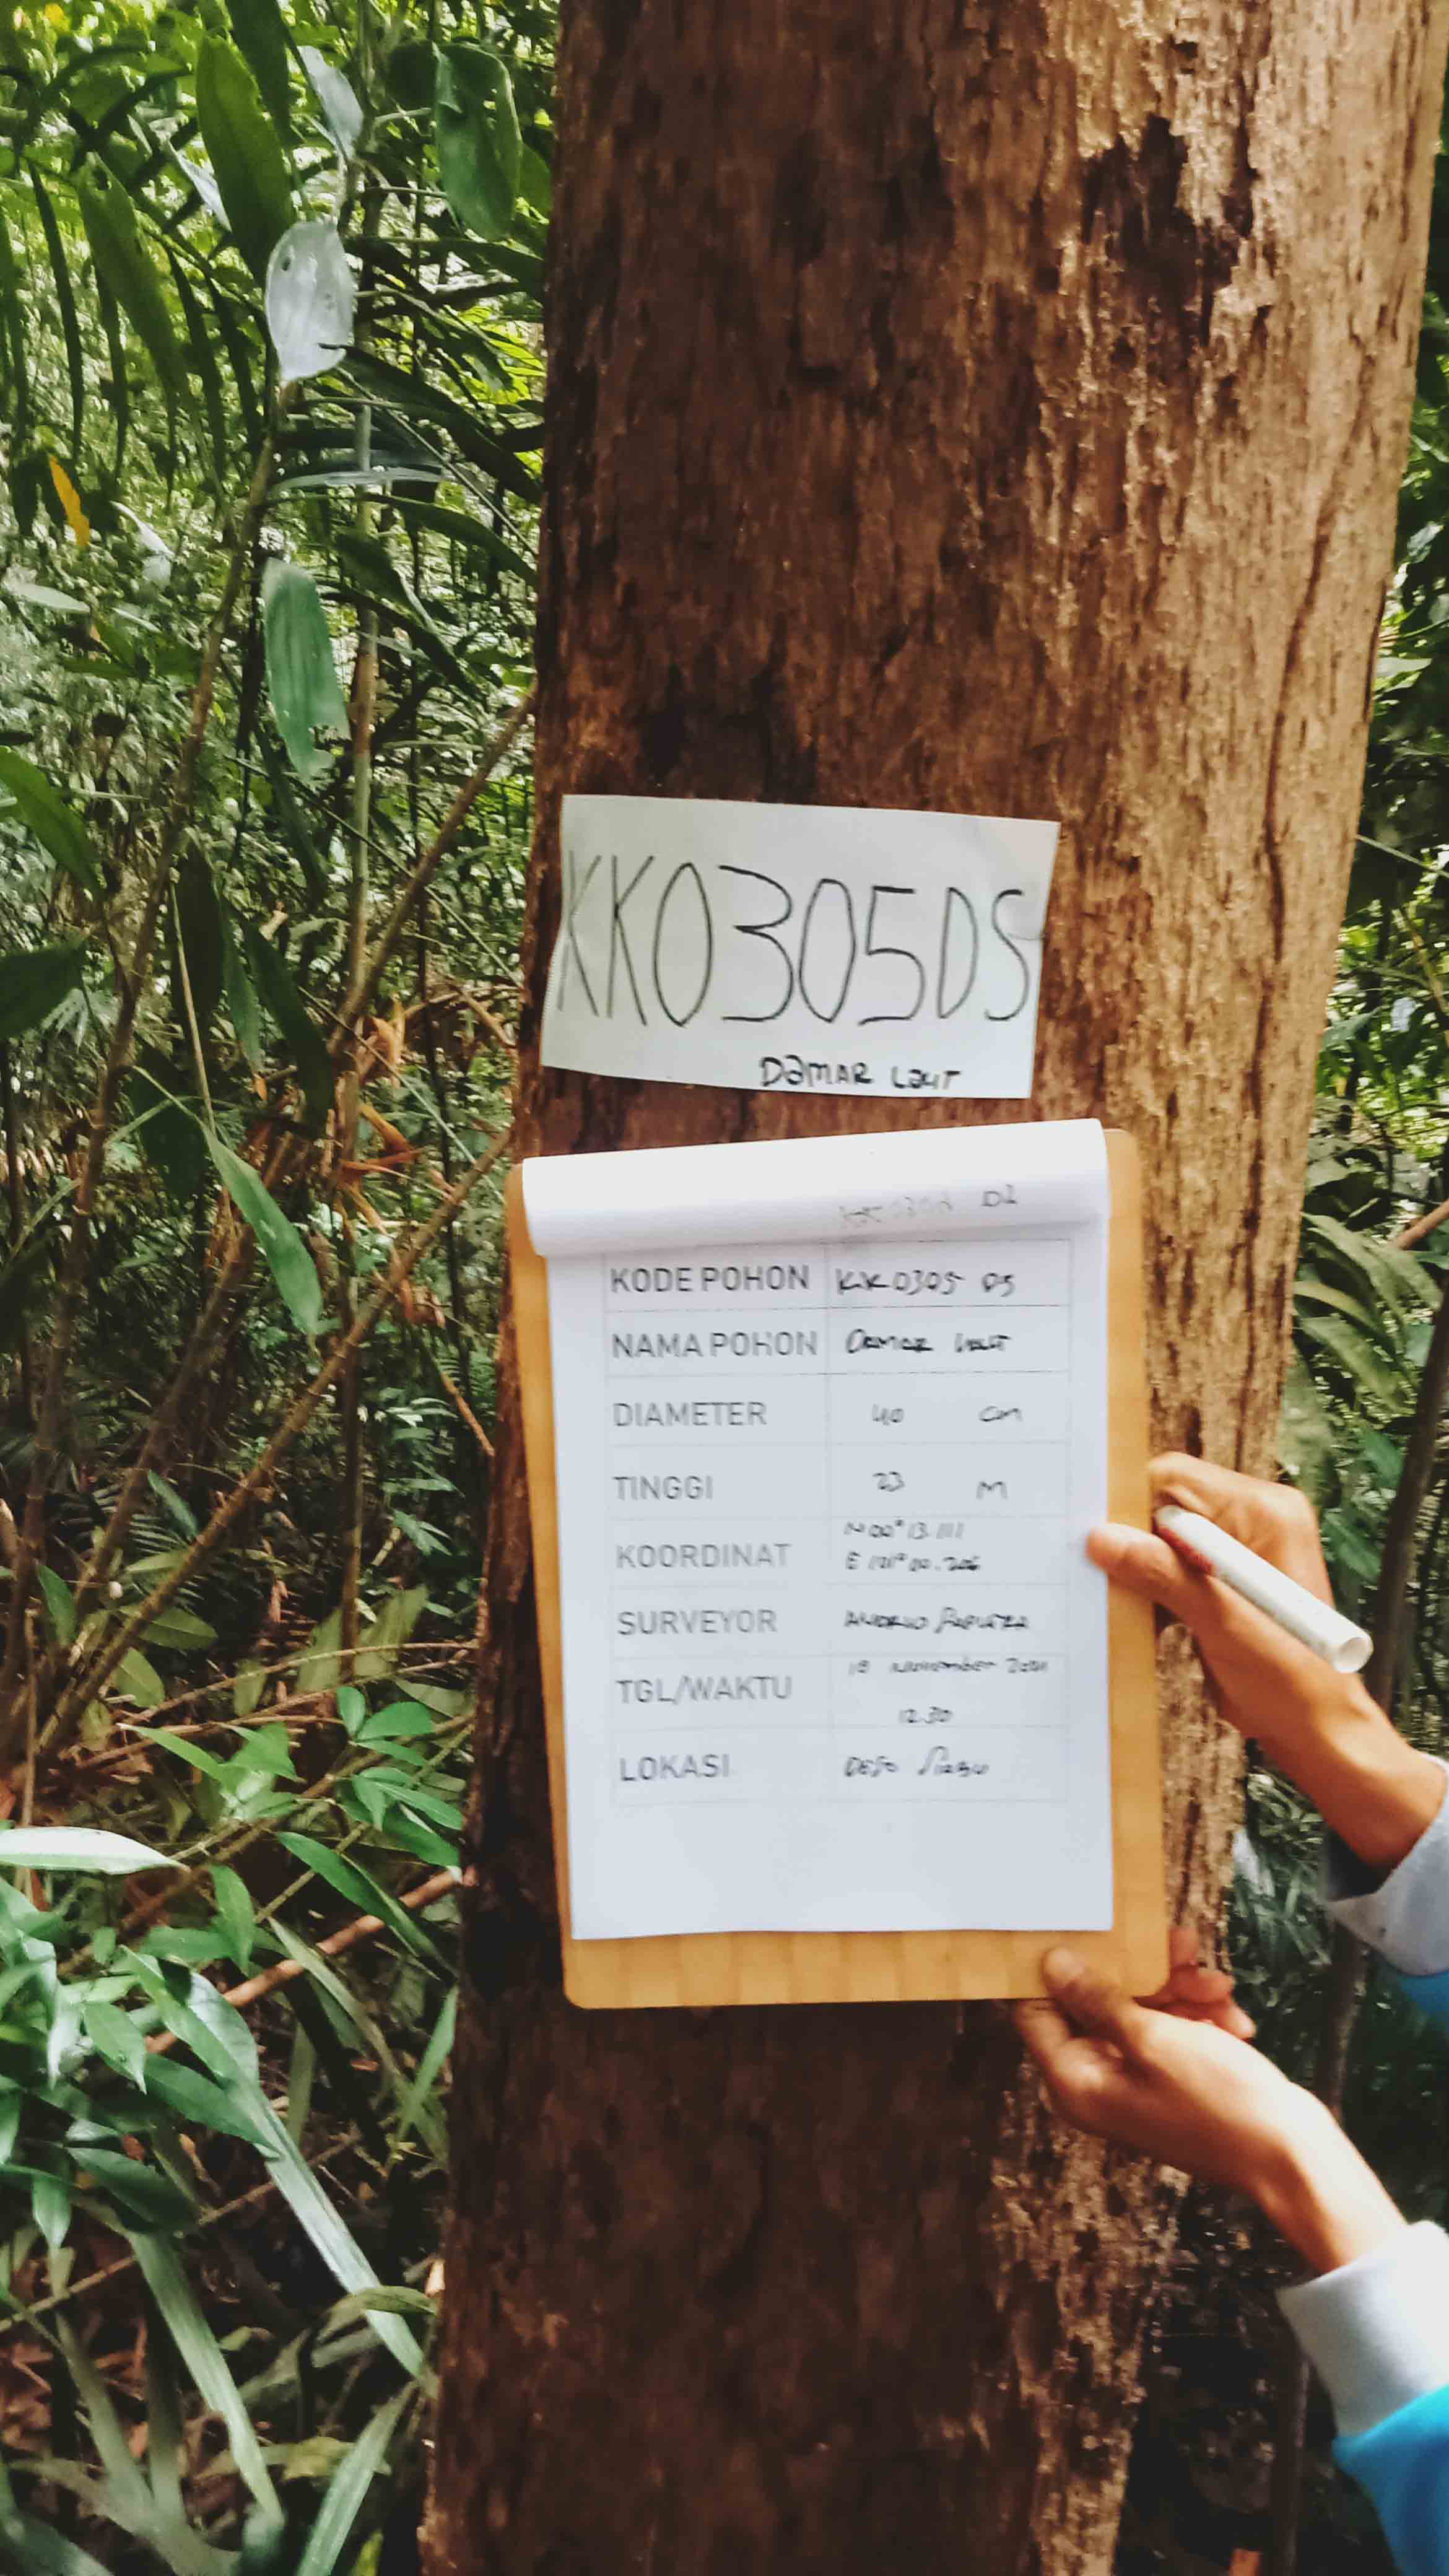 KK0305DS
DAMAR LAUT
DS
KODE POHON KK0305 DS
NAMA POHON DAMAR LAUT
DIAMETER 40 cm
TINGGI 23 M
KOORDINAT N 00° 13.111
E 101° 00.206
SURVEYOR SAPUTRA
TGL/WAKTU November 2021
12.30
LOKASI DESA